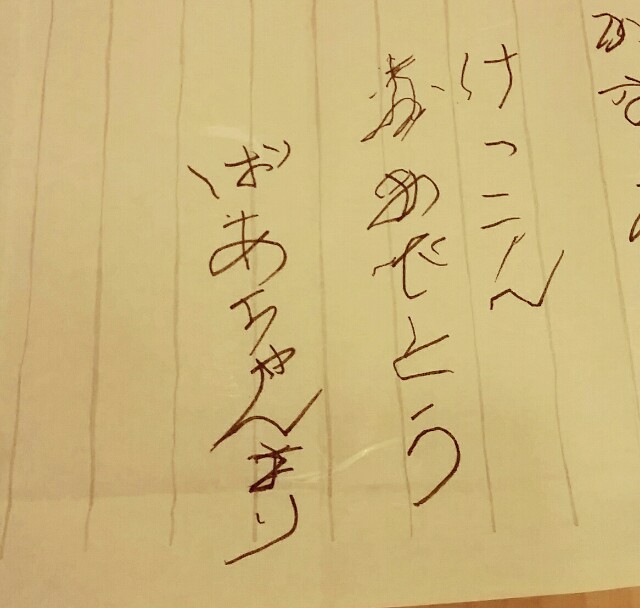 けっこん
おめでとう
ばあちゃんより